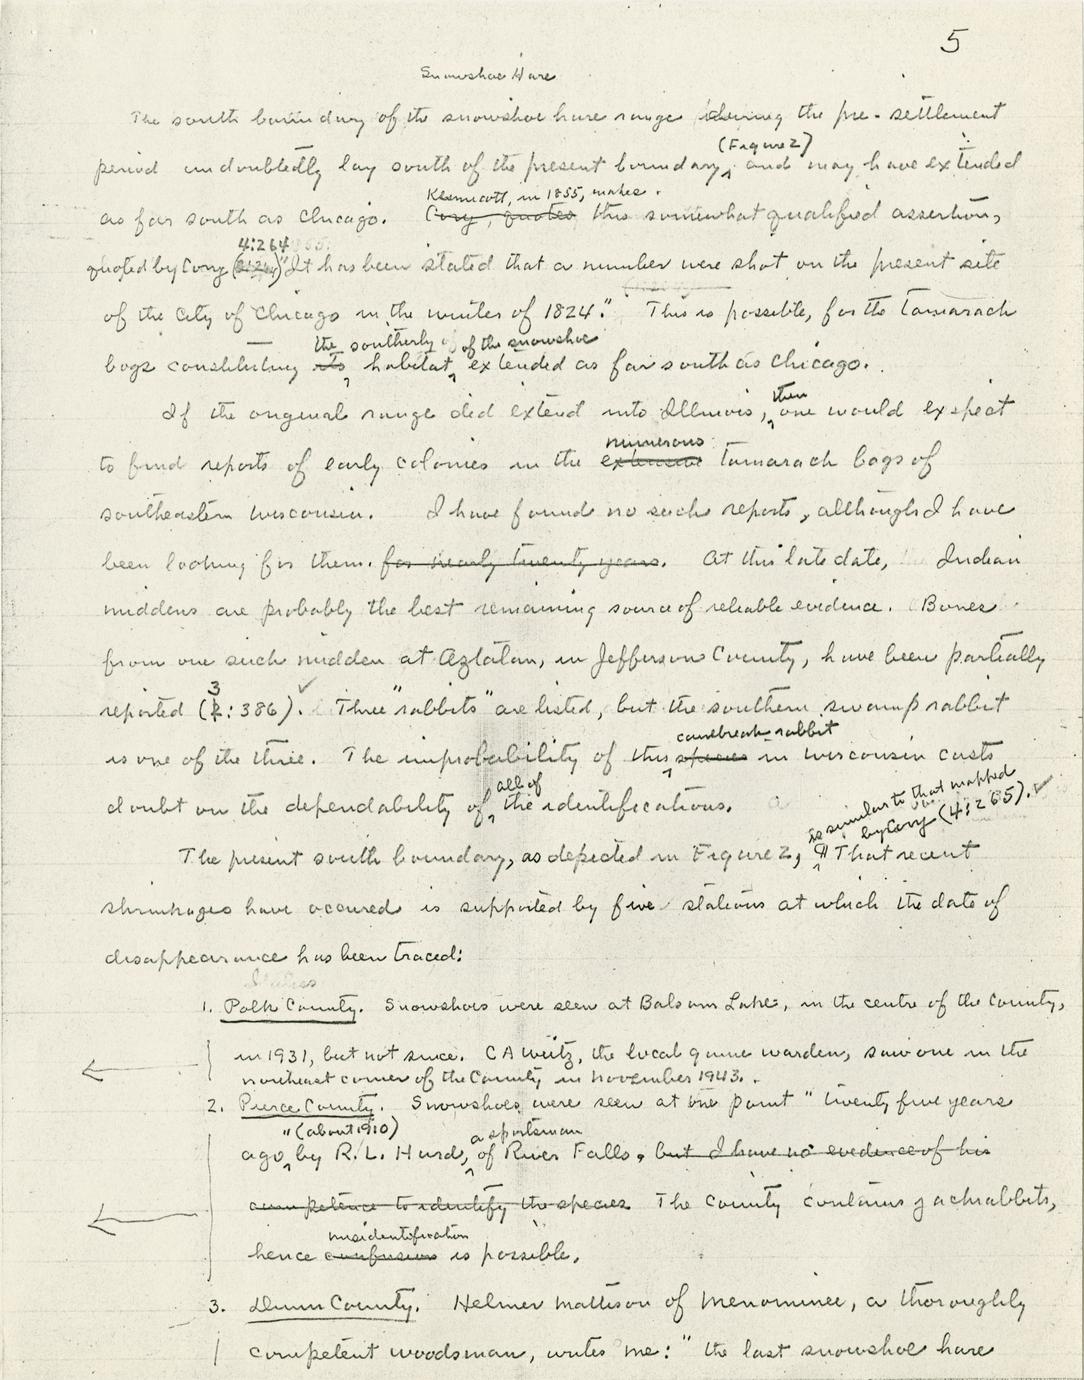 5
Snowshoe Hare
The south boundary of the snowshoe hare range during the pre-settlement
(Figure 2)
period undoubtedly lay south of the present boundary, and may have extended
Kennicott, in 1855, makes
as far south as Chicago. Cory, quotes this somewhat qualified assertion,
4:264
quoted by Cory ( ) "It has been stated that a number were shot on the present site
of the city of Chicago in the winter of 1824". This is possible, for the tamarack
the southerly of the snowshoe
bogs constituting its habitat, extended as far south as Chicago.
then
If the original range did extend into Illinois, one would expect
numerous
to find reports of early colonies in the extensive tamarack bogs of
southeastern Wisconsin. I have found no such reports, although I have
been looking for them. for nearly twenty years. At this late date, Indian
middens are probably the best remaining source of reliable evidence. Bones
from one such midden at Aztalan, in Jefferson County, have been partially
3
reported (2:386). Three "rabbits" are listed, but the southern swamp rabbit
canebreak rabbit
is one of the three. The improbability of this species in Wisconsin casts
all of
doubt on the dependability of the identifications.
is similar to that mapped
by Cory (4:265).
The present south boundary, as depicted in Figure 2, ¶ That recent
shrinkages have occured is supported by five stations at which the date of
disappearance has been traced:
1. Polk County. Snowshoes were seen at Balsam Lake, in the centre of the County,
in 1931, but not since. C A Weitz, the local game warden, saw one in the
northeast corner of the County in November 1943.
2. Pierce County. Snowshoes were seen at one point "twenty five years
" (about 1910) a sportsman
ago, by R. L. Hurd, of River Falls, but I have no evidence of his
competence to identify the species. The County contains jackrabbits,
misidentification
hence confusion is possible.
3. Dunn County. Helmer Mattison of Menominee, a thoroughly
competent woodsman, writes me: "the last snowshoe hare